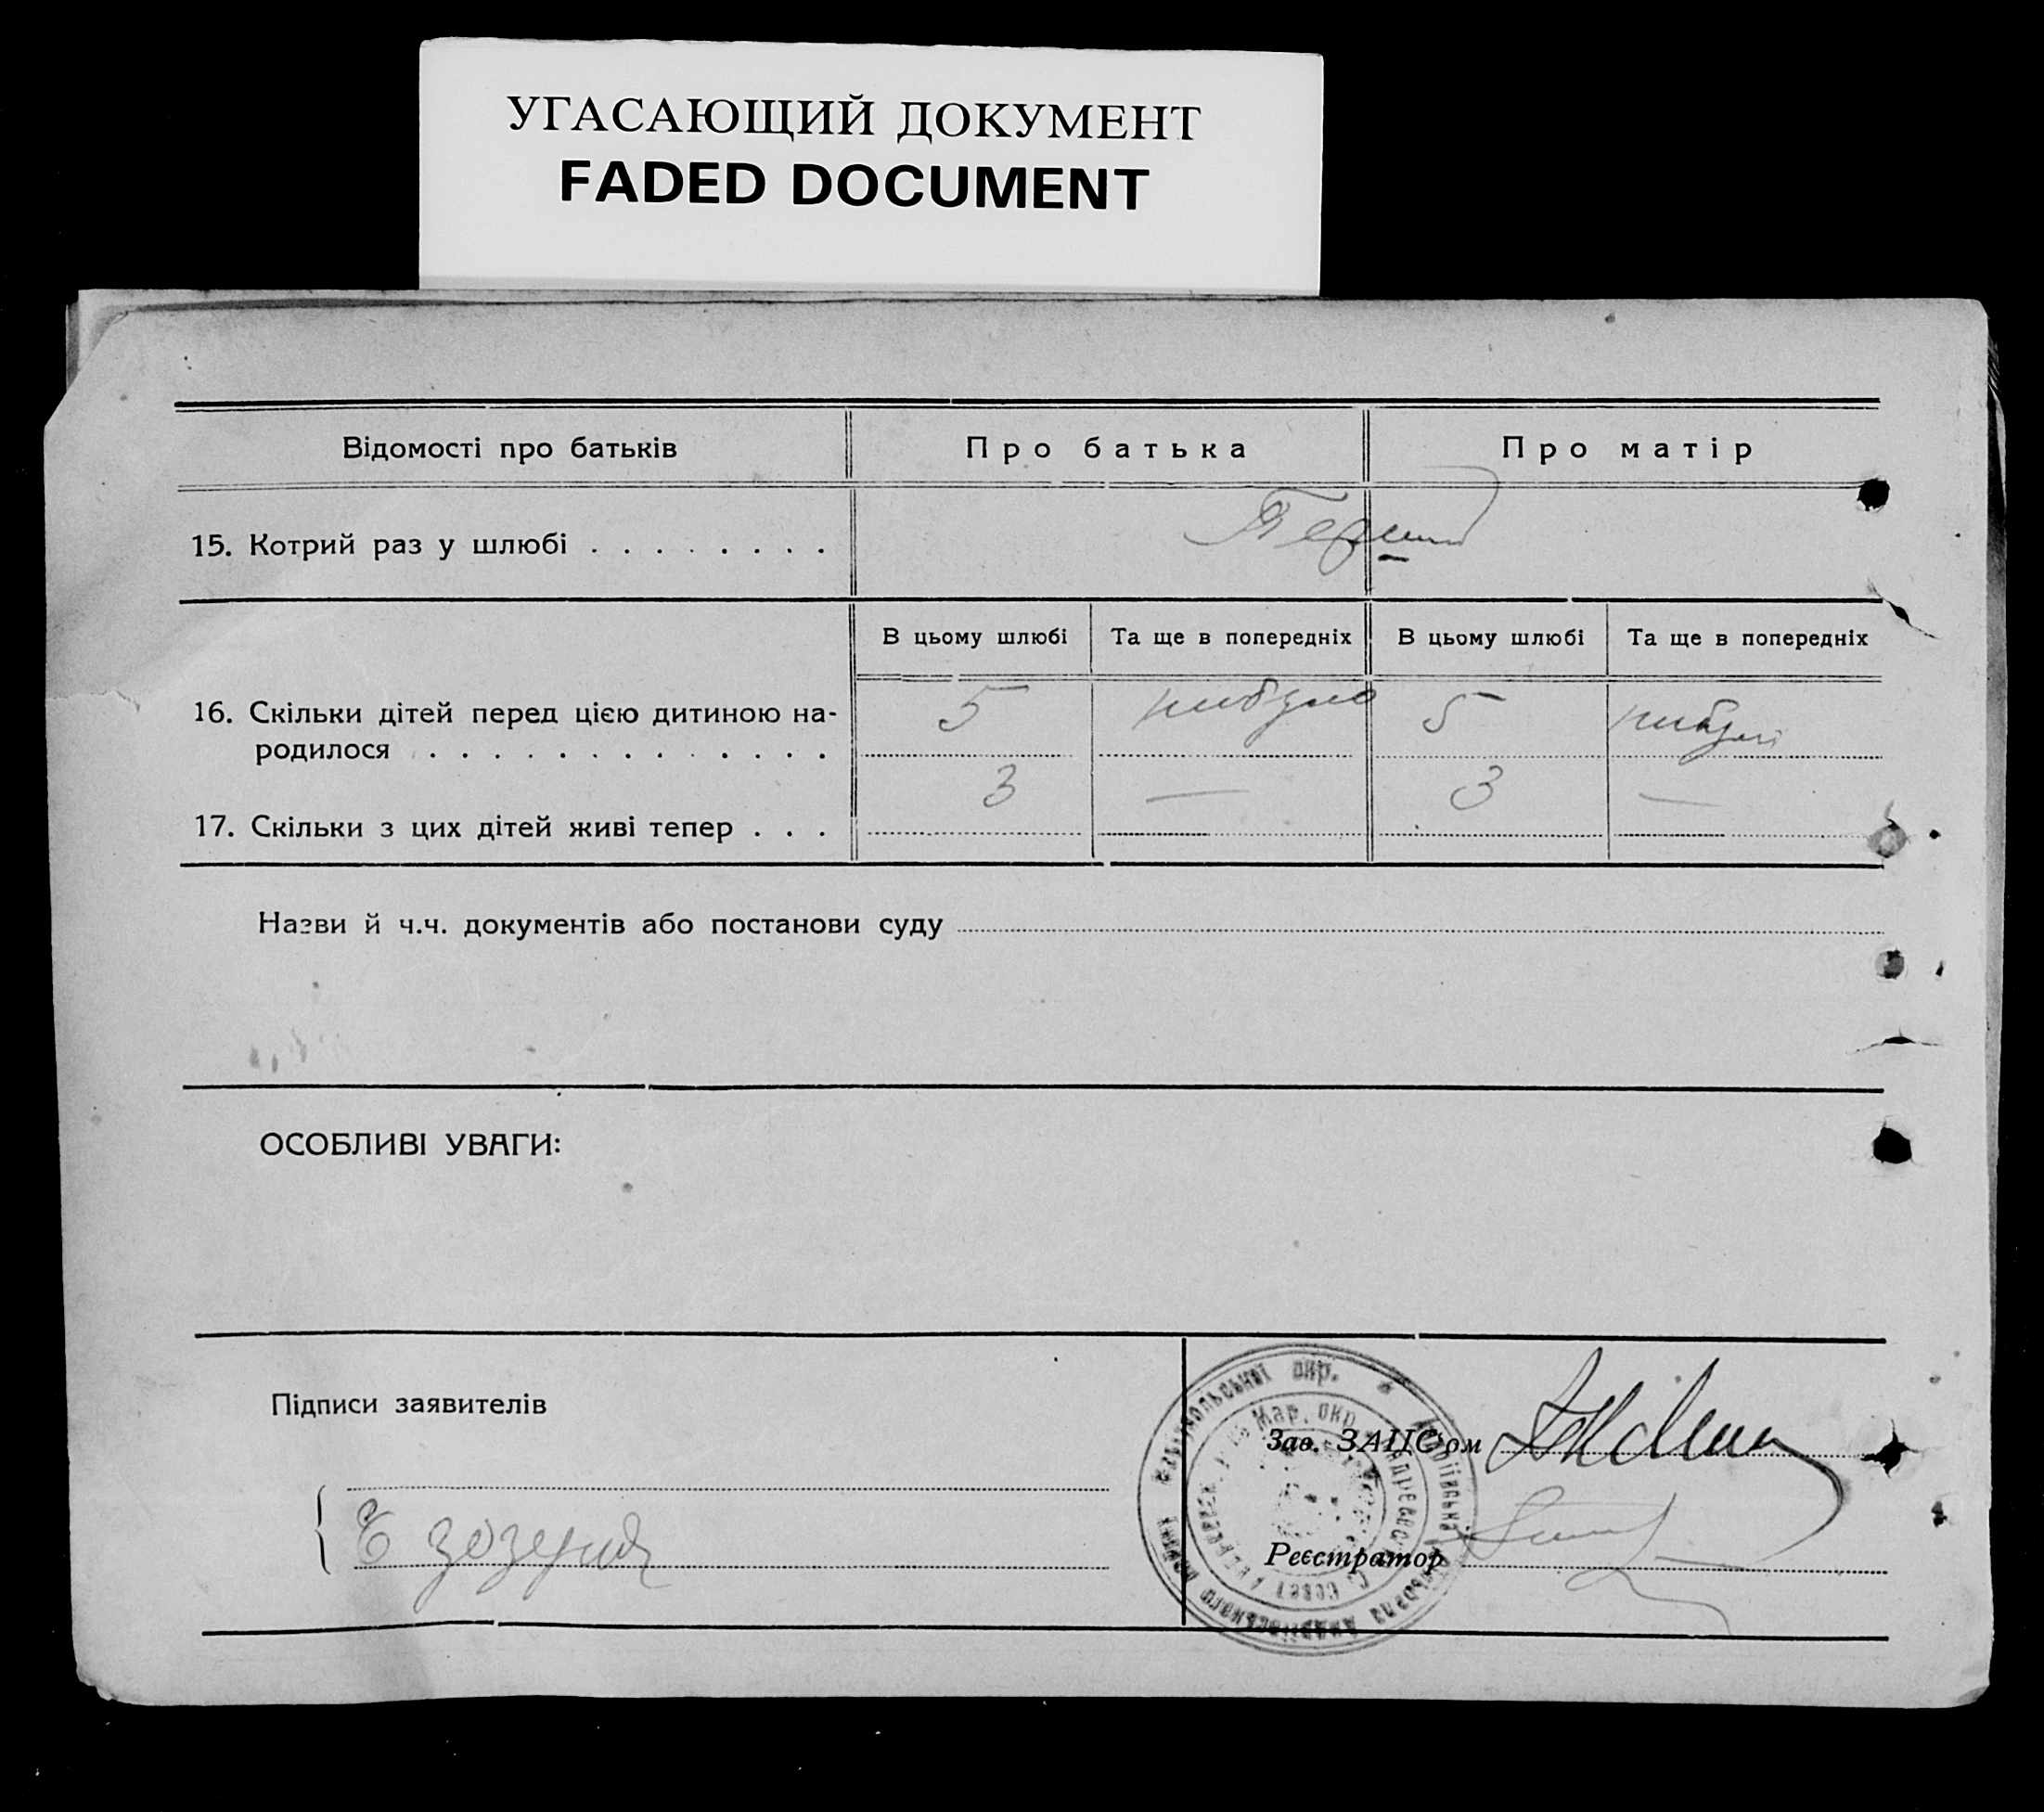 УГАСАЮЩИЙ ДОКУМЕНТ
FADED DOCUMENT
Відомості про батьків
Про батька
Про матір
15. Котрий раз у шлюбі . . . . . . . .
Перший
В цьому шлюбі
Та ще в попередніх
В цьому шлюбі
Та ще в попередніх
16. Скільки дітей перед цією дитиною на-
родилося . . . . . . . . . . . . .
5
небуло
5
небуло
17. Скільки з цих дітей живі тепер . . .
3
—
3
—
Назви й ч.ч. документів або постанови суду
ОСОБЛИВІ УВАГИ:
Підписи заявителів
Зав. ЗАЦСом
Реєстратор
окр.
Мар. окр.